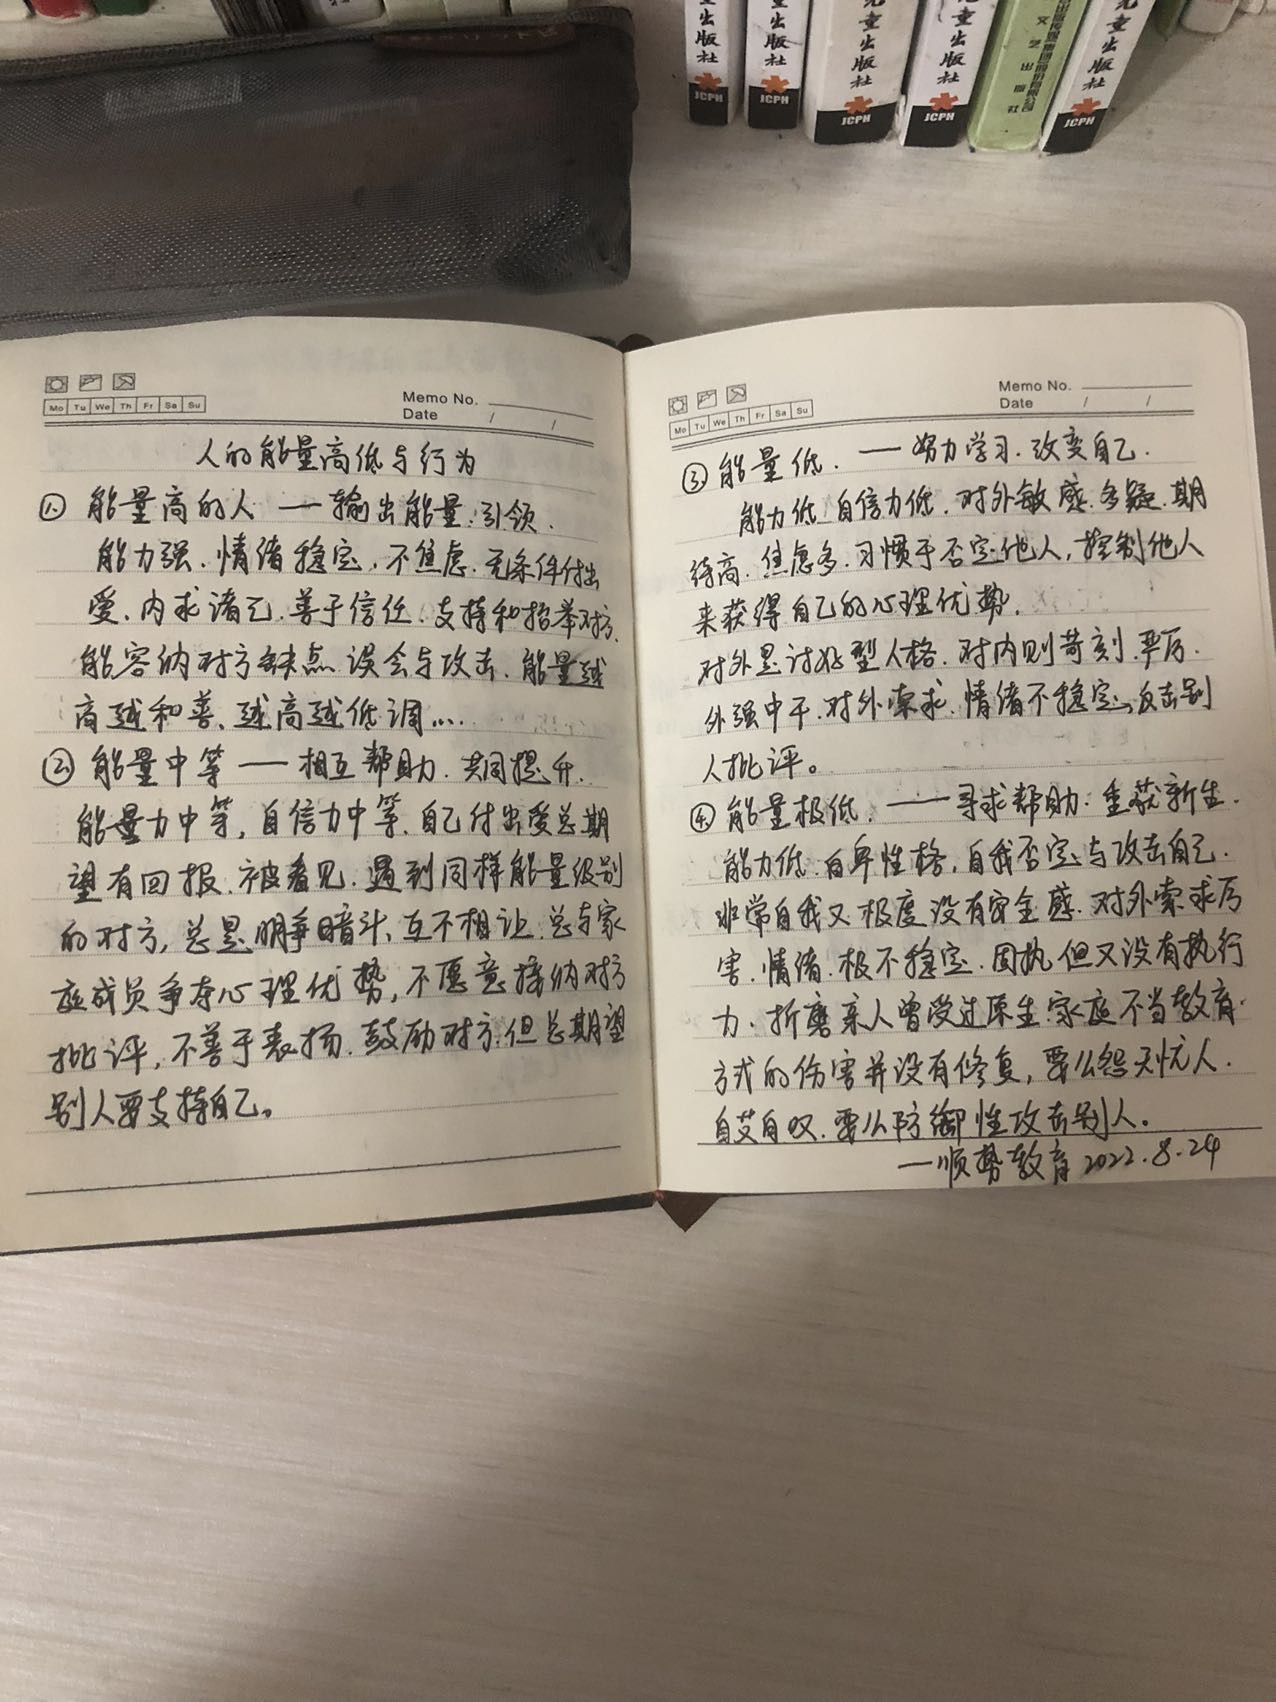 童出版社
JCPH
童出版社
JCPH
儿童出版社
JCPH
儿童出版社
JCPH
文艺出版社
儿童出版社
JCPH
Mo Tu We Th Fr Sa Su
Memo No.
Date / /
人的能量高低与行为
① 能量高的人 — 输出能量.引领.
能力强.情绪稳定.不焦虑.无条件付出
爱.内求诸己.善于信任.支持和抬举对方.
能容纳对方缺点.误会与攻击.能量越
高越和善、越高越低调...
② 能量中等 — 相互帮助.共同提升.
能量力中等,自信力中等.自己付出爱总期
望有回报.被看见.遇到同样能量级别
的对方,总是明争暗斗、互不相让.总与家
庭成员争夺心理优势,不愿意接纳对方
批评,不善于表扬.鼓励对方.但总期望
别人要支持自己。
Mo Tu We Th Fr Sa Su
Memo No.
Date / /
③ 能量低. — 努力学习.改变自己.
能力低.自信力低.对外敏感.多疑.期
待高.焦虑多.习惯于否定他人,控制他人
来获得自己的心理优势.
对外是讨好型人格.对内则苛刻.严厉.
外强中干.对外索求.情绪不稳定、反击别
人批评。
④ 能量极低. — 寻求帮助.重获新生.
能力低.自卑性格,自我否定与攻击自己.
非常自我又极度没有安全感.对外索求厉
害.情绪.极不稳定.固执但又没有执行
力.折磨亲人曾受过原生家庭不当教育.
方式的伤害并没有修复,要么怨天忧人.
自艾自叹.要么防御性攻击别人。
—顺势教育2022.8.24